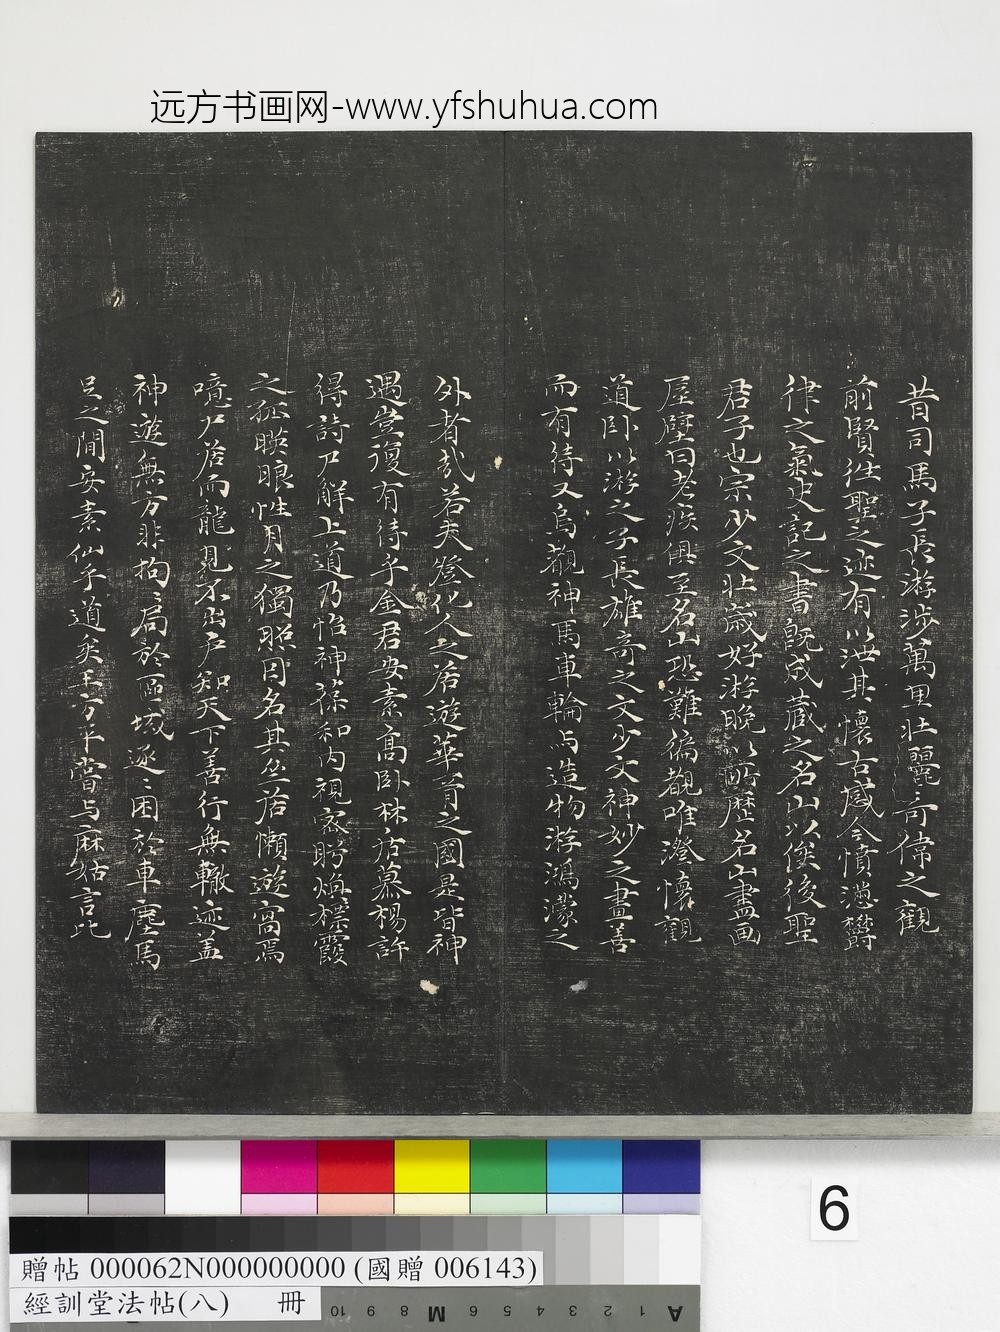 远方书画网-www.yfshuhua.com
昔司馬子長游涉萬里壯麗奇偉之觀
前賢往聖之迹有以泄其懷古感今憤懣欝
律之氣史記之書既成蔵之名山以俟後聖
君子也宗少文壯歲好游晚以所歷名山畫画
屋壁曰老疾俱至名山恐難徧觀唯澄懷觀
道卧以游之子長雄奇之文少文神妙之畫善
而有待又烏觀神馬車輪与造物游鴻濛之
外者哉若夫登化人之居遊華胥之國是皆神
遇豈復有待乎金君安素高卧林居慕楊許
得詩尸解上道乃怡神葆和内視密盻煥標霞
之於暎眼性月之獨照因名其坐居懶遊窩焉
噫尸居而龍見不出户知天下善行無轍迹盖
神遊無方非拘:局於區域逐:困於車塵馬
足之間安素仙乎道矣王方平嘗与麻姑言比
6
贈帖 000062N000000000 (國贈 006143)
經訓堂法帖(八) 冊
10 9 8 M 6 5 4 3 2 1 A